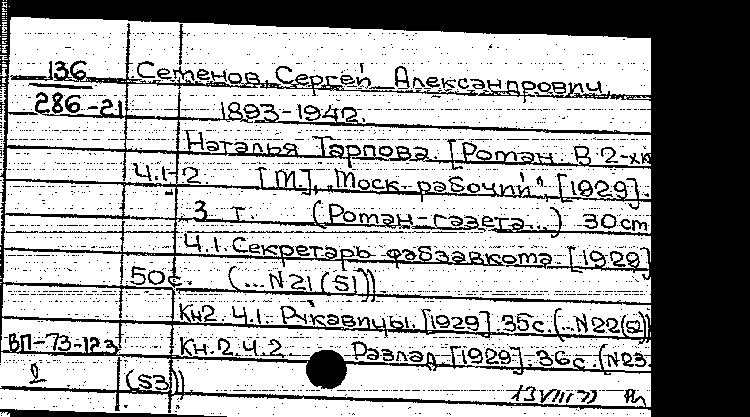 136 Семенов, Сергей Александрович,
286-21 1893-1942.
Наталья Тарпова. [Роман. В 2-х кн
Ч.1-2 [М.], "Моск. рабочий", [1929].
3 т. (Роман-газета...) 30 см
Ч.1. Секретарь фабзавкома. [1929]
50с. (...N21(51)).
Кн2. Ч.1. Рукавицы. [1929]. 35с. (..N22(52))
ВП-73-123 Кн.2.Ч.2. Разлад [1929]. 36с. (N23
2 (53))
13 VIII